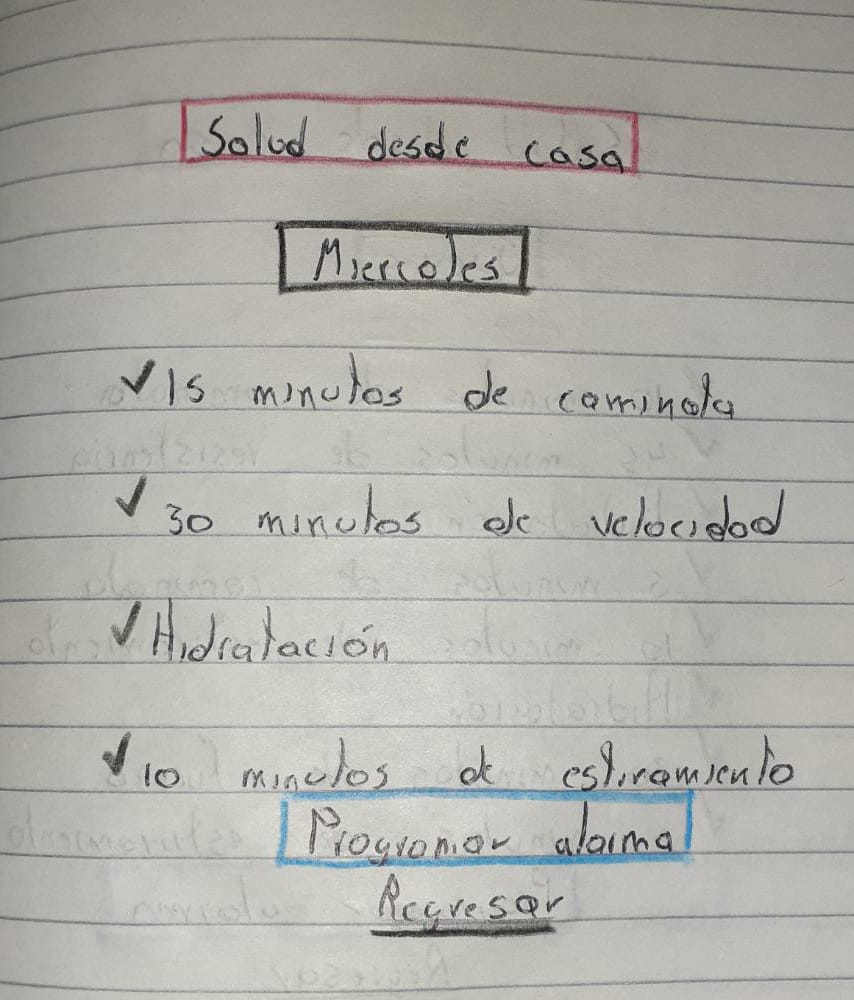 Salud desde casa
Miercoles
✓ 15 minutos de caminata
✓ 30 minutos de velocidad
✓ Hidratación
✓ 10 minutos de estiramiento
Programar alarma
Regresar